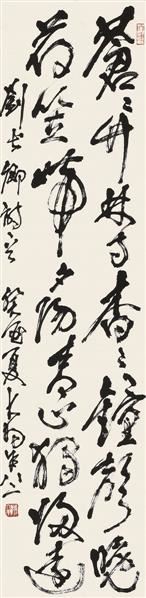 蒼〻竹林寺杳〻鐘聲晚
荷笠帶夕陽青山獨歸遠
劉長卿詩 癸酉夏大